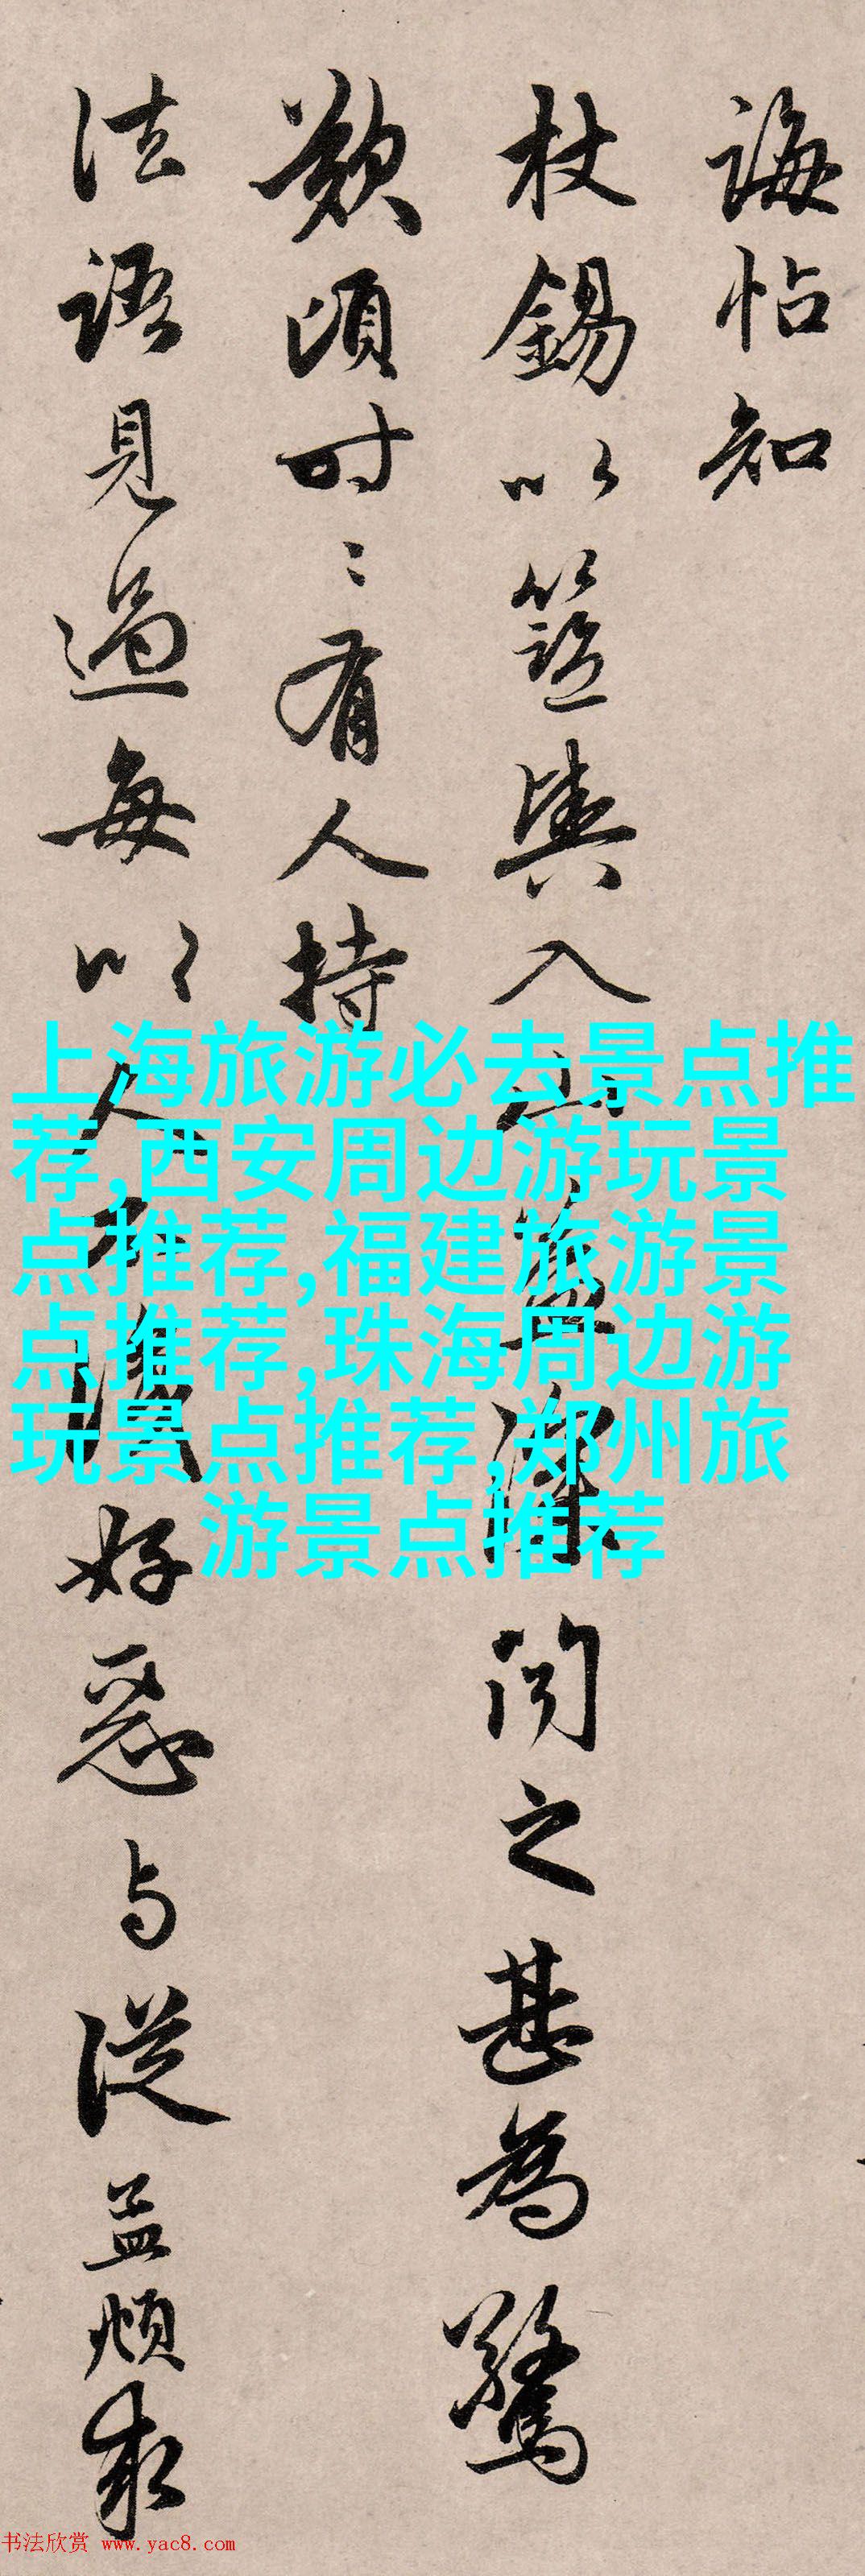 诲帖知
杖锡以篮舆入山
闻之甚为驚
歎頃时〻有人持
法語見過每以人
好恶与従益煩来
上海旅游必去景点推
荐,西安周边游玩景
点推荐,福建旅游景
点推荐,珠海周边游
玩景点推荐,郑州旅
游景点推荐
书法欣赏 www.yac8.com